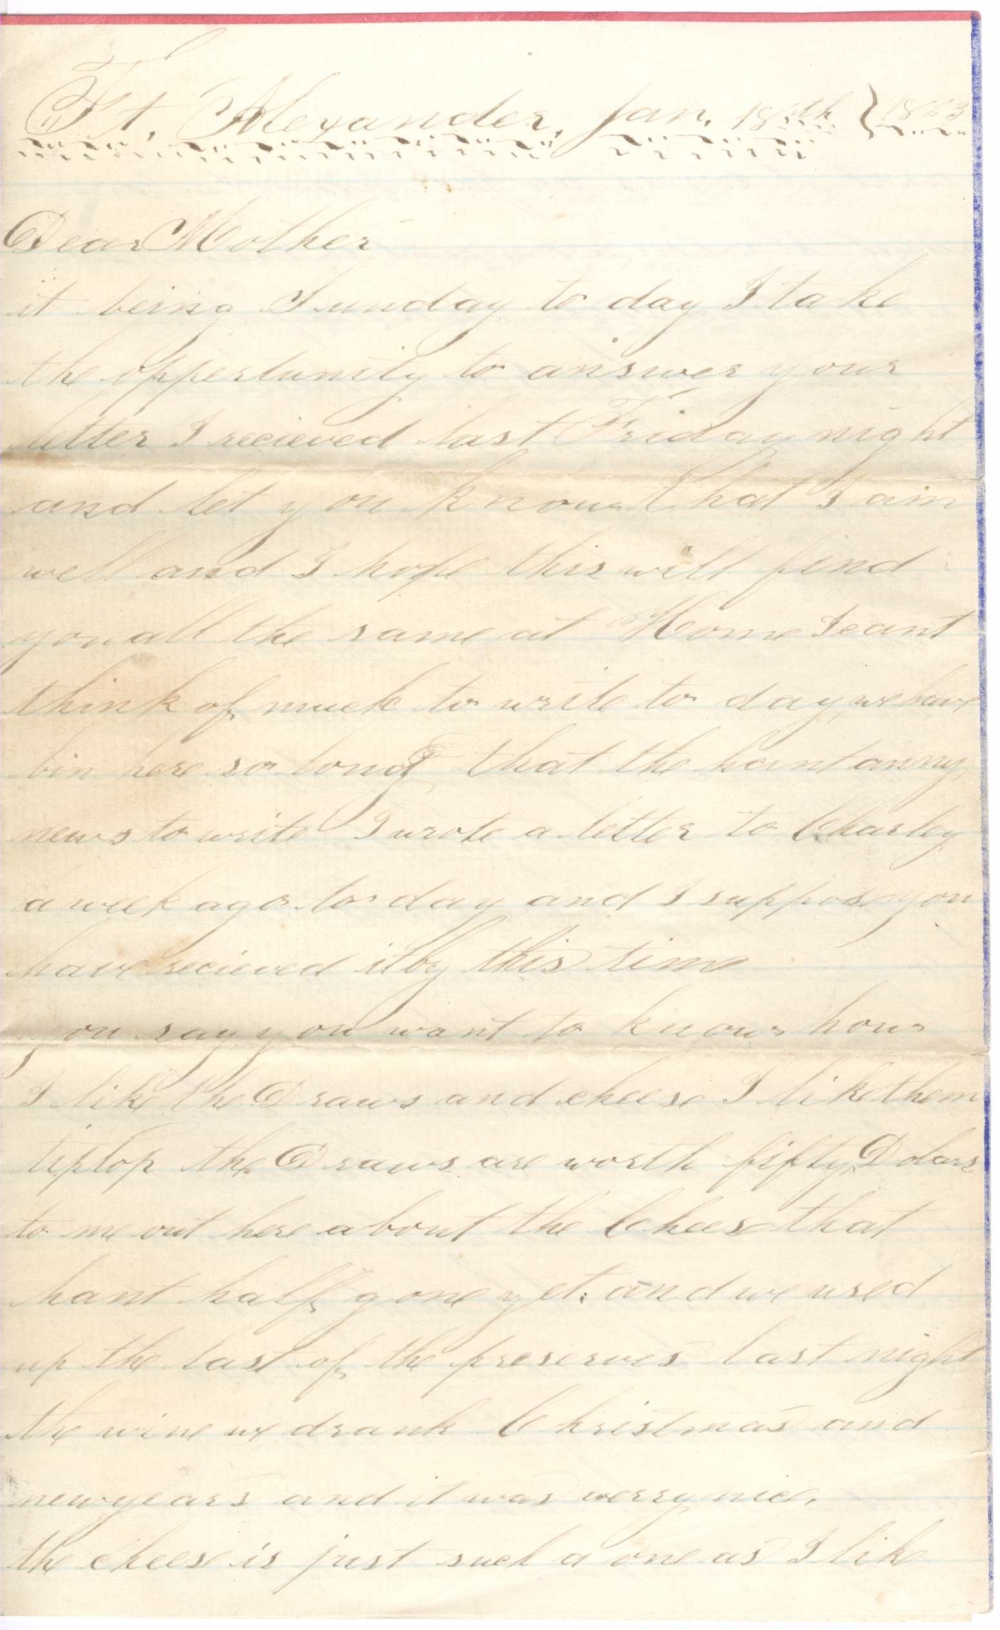 Ft. Alexander, Jan. 18th 1863
Dear Mother
it being Sunday to day I take
the oppertunity to answer your
letter I recieved last Friday night
and let you know that I am
well and I hope this will find
you all the same at Home I cant
think of much to write to day we have
bin here so long that the haint anny
news to write I wrote a letter to Charley
a week ago to day and I suppose you
have recieved it by this time
you say you want to know how
I like the Draws and cheese I like them
tiptop the Draws are worth fifty Dolars
to me out here about the Cheese that
hant half gone yet. and we used
up the last of the preserves last night
the wine we drank Christmas and
newyears and it was verry nice.
the cheese is just such a one as I like